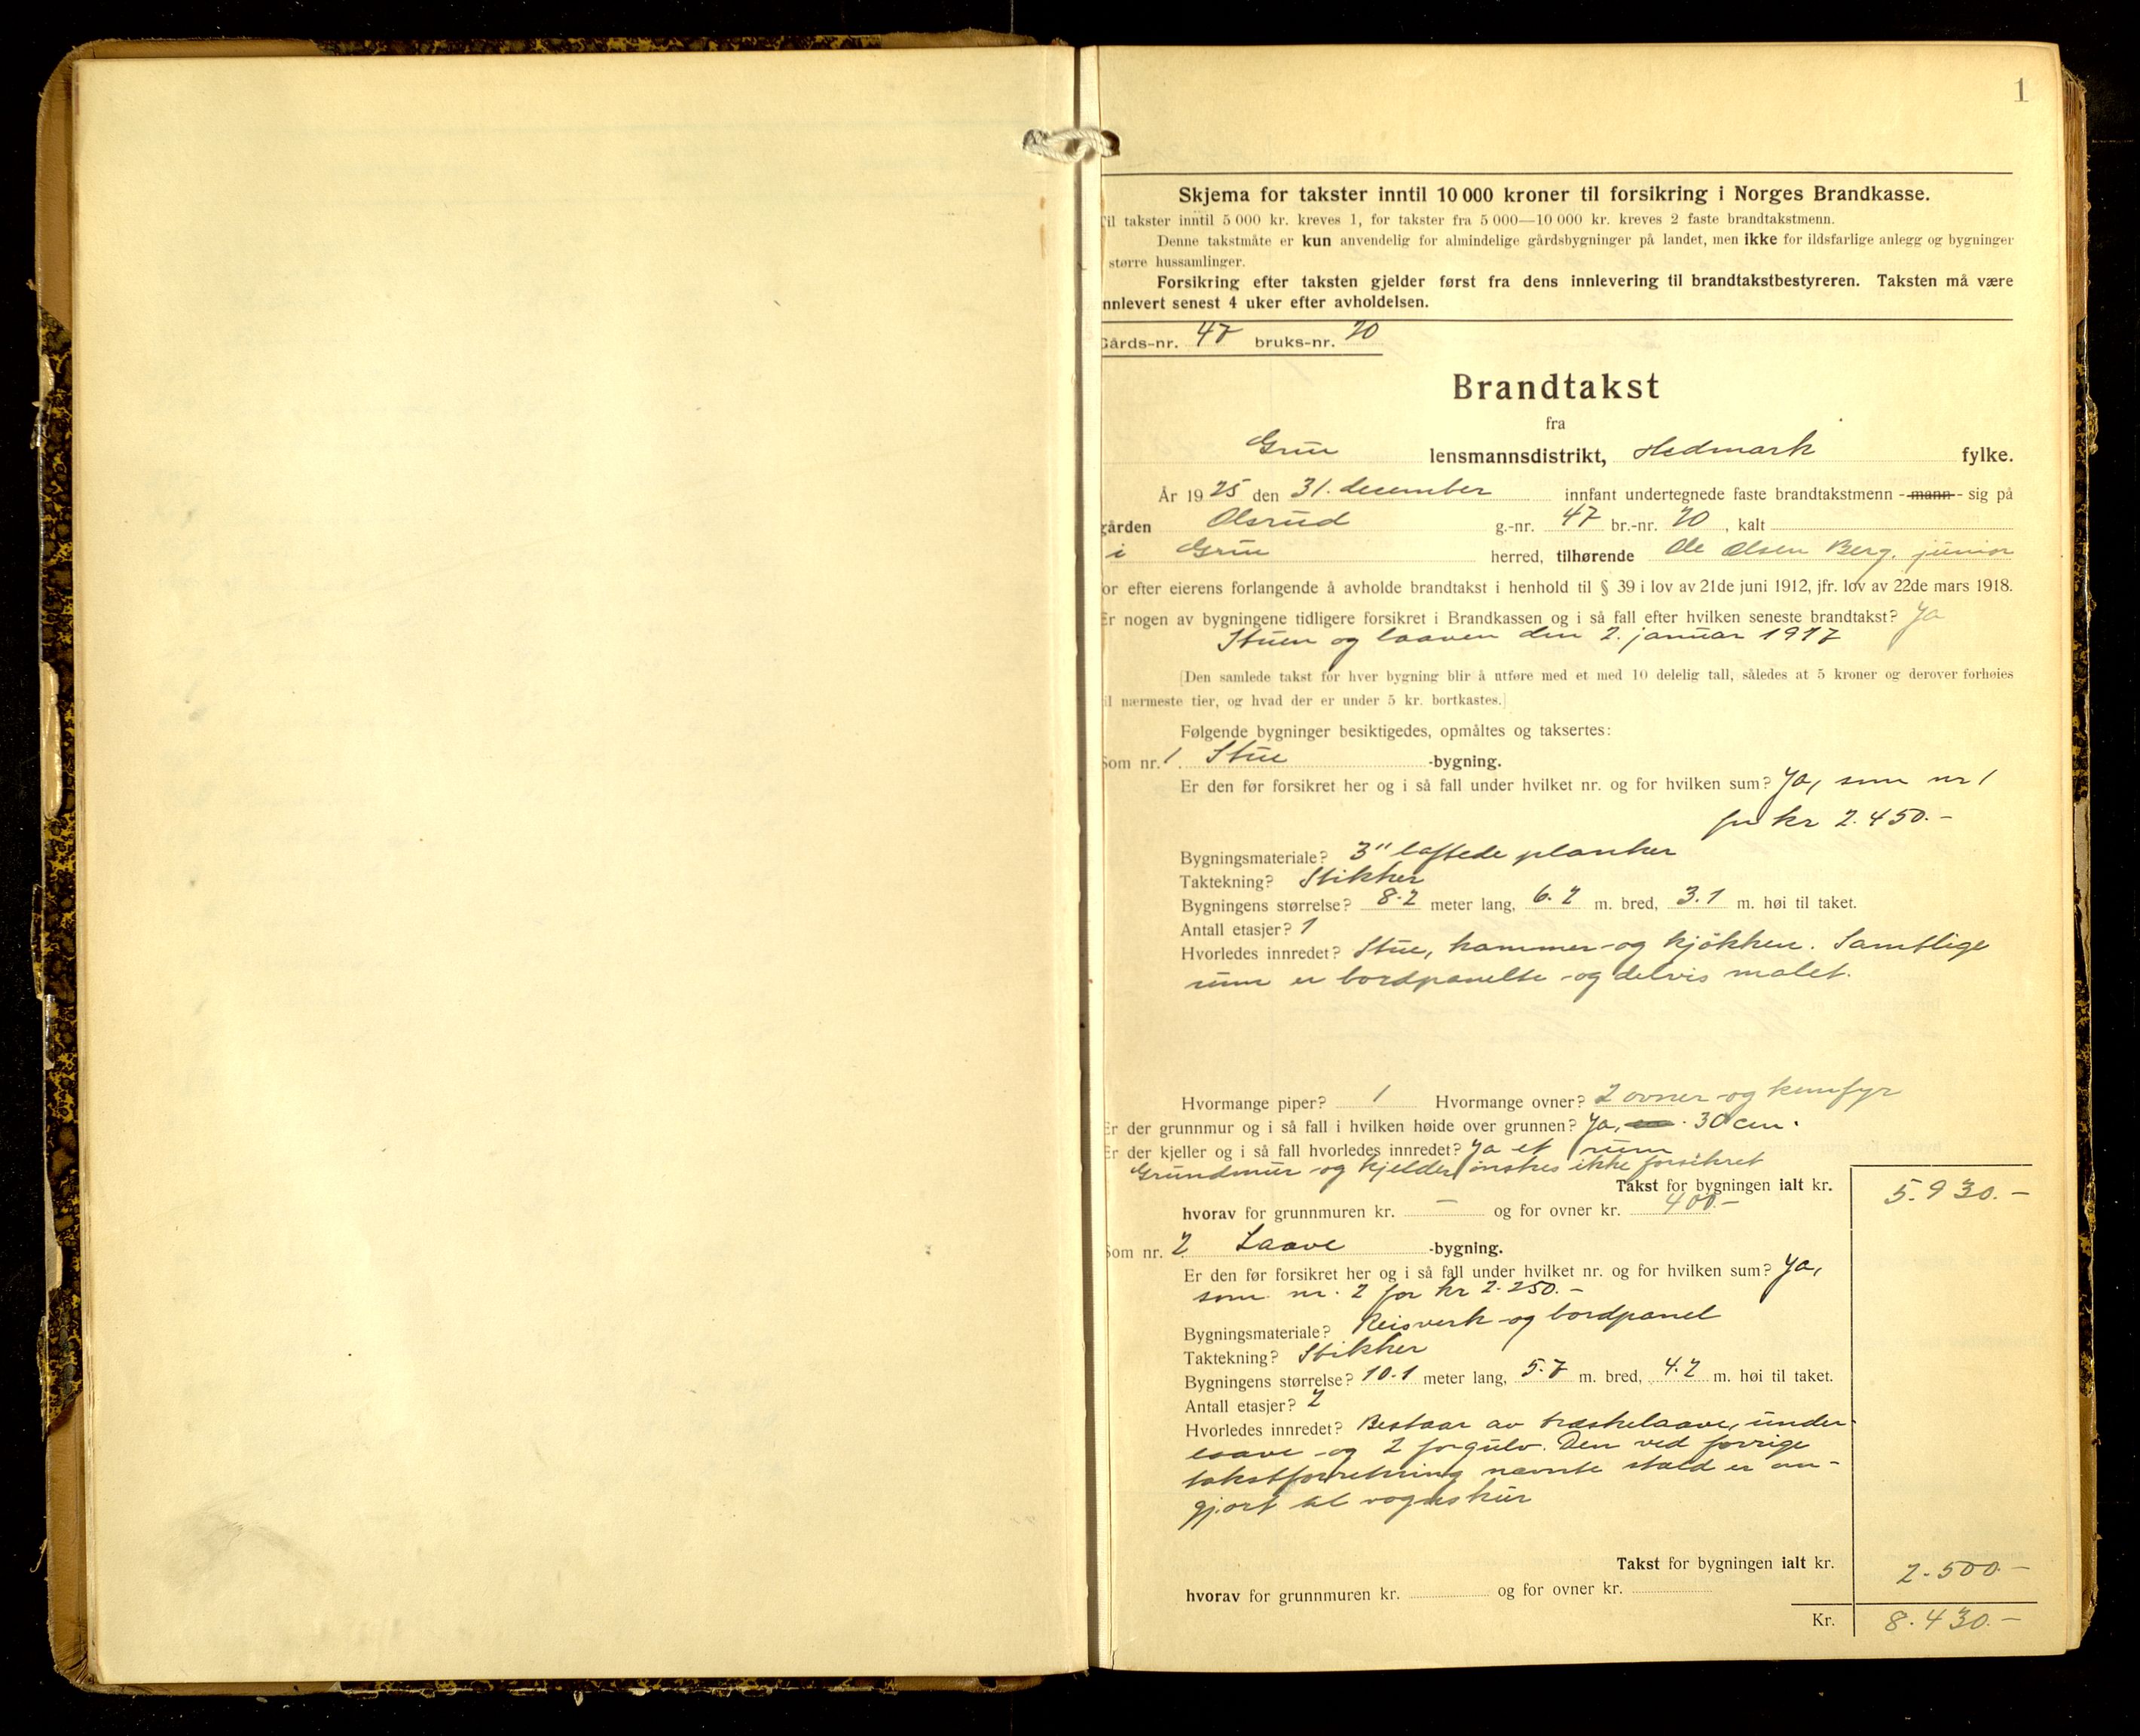 1
Skjema for takster inntil 10 000 kroner til forsikring i Norges Brandkasse.
Til takster inntil 5 000 kr. kreves 1, for takster fra 5 000—10 000 kr. kreves 2 faste brandtakstmenn.
Denne takstmåte er kun anvendelig for almindelige gårdsbygninger på landet, men ikke for ildsfarlige anlegg og bygninger
større hussamlinger.
Forsikring efter taksten gjelder først fra dens innlevering til brandtakstbestyreren. Taksten må være
nnlevert senest 4 uker efter avholdelsen.
Gårds-nr. 47 bruks-nr. 20
Brandtakst
fra
Grue lensmannsdistrikt, Hedmark fylke.
År 1925 den 31. december innfant undertegnede faste brandtakstmenn - mann - sig på
gården Olsrud g.-nr. 47 br.-nr. 20, kalt
i Grue herred, tilhørende Ole Olsen Berg. junior
for efter eierens forlangende å avholde brandtakst i henhold til § 39 i lov av 21de juni 1912, jfr. lov av 22de mars 1918.
Er nogen av bygningene tidligere forsikret i Brandkassen og i så fall efter hvilken seneste brandtakst? Ja
Stuen og laaven den 2. januar 1917
[Den samlede takst for hver bygning blir å utføre med et med 10 delelig tall, således at 5 kroner og derover forhøies
til nærmeste tier, og hvad der er under 5 kr. bortkastes.]
Følgende bygninger besiktigedes, opmåltes og taksertes:
Som nr. 1. Stue -bygning.
Er den før forsikret her og i så fall under hvilket nr. og for hvilken sum? Ja, som nr 1
for kr 2.450.-
Bygningsmateriale? 3" laftede planker
Taktekning? Stikker
Bygningens størrelse? 8.2 meter lang, 6.2 m. bred, 3.1 m. høi til taket.
Antall etasjer? 1
Hvorledes innredet? Stue, kammer og kjökken. Samtlige
rum er bordpanelte og delvis malet.
Hvormange piper? 1 Hvormange ovner? 2 ovner og komfyr
Er der grunnmur og i så fall i hvilken høide over grunnen? Ja, 30 cm.
Er der kjeller og i så fall hvorledes innredet? Ja et rum
Grundmur og kjelder ønskes ikke forsikret
Takst for bygningen ialt kr. 5.930.-
hvorav for grunnmuren kr. — og for ovner kr. 400.-
Som nr. 2 Laave -bygning.
Er den før forsikret her og i så fall under hvilket nr. og for hvilken sum? Ja,
som nr. 2 for kr 2.250.-
Bygningsmateriale? Reisverk og bordpanel
Taktekning? Stikker
Bygningens størrelse? 10.1 meter lang, 5.7 m. bred, 4.2 m. høi til taket.
Antall etasjer? 2
Hvorledes innredet? Bestaar av træskelaave, under-
laave og 2 forgulv. Den ved forrige
takstforretning nævnte stald er om-
gjort til vognskur
Takst for bygningen ialt kr. 2.500.-
hvorav for grunnmuren kr. og for ovner kr.
Kr. 8.430.-